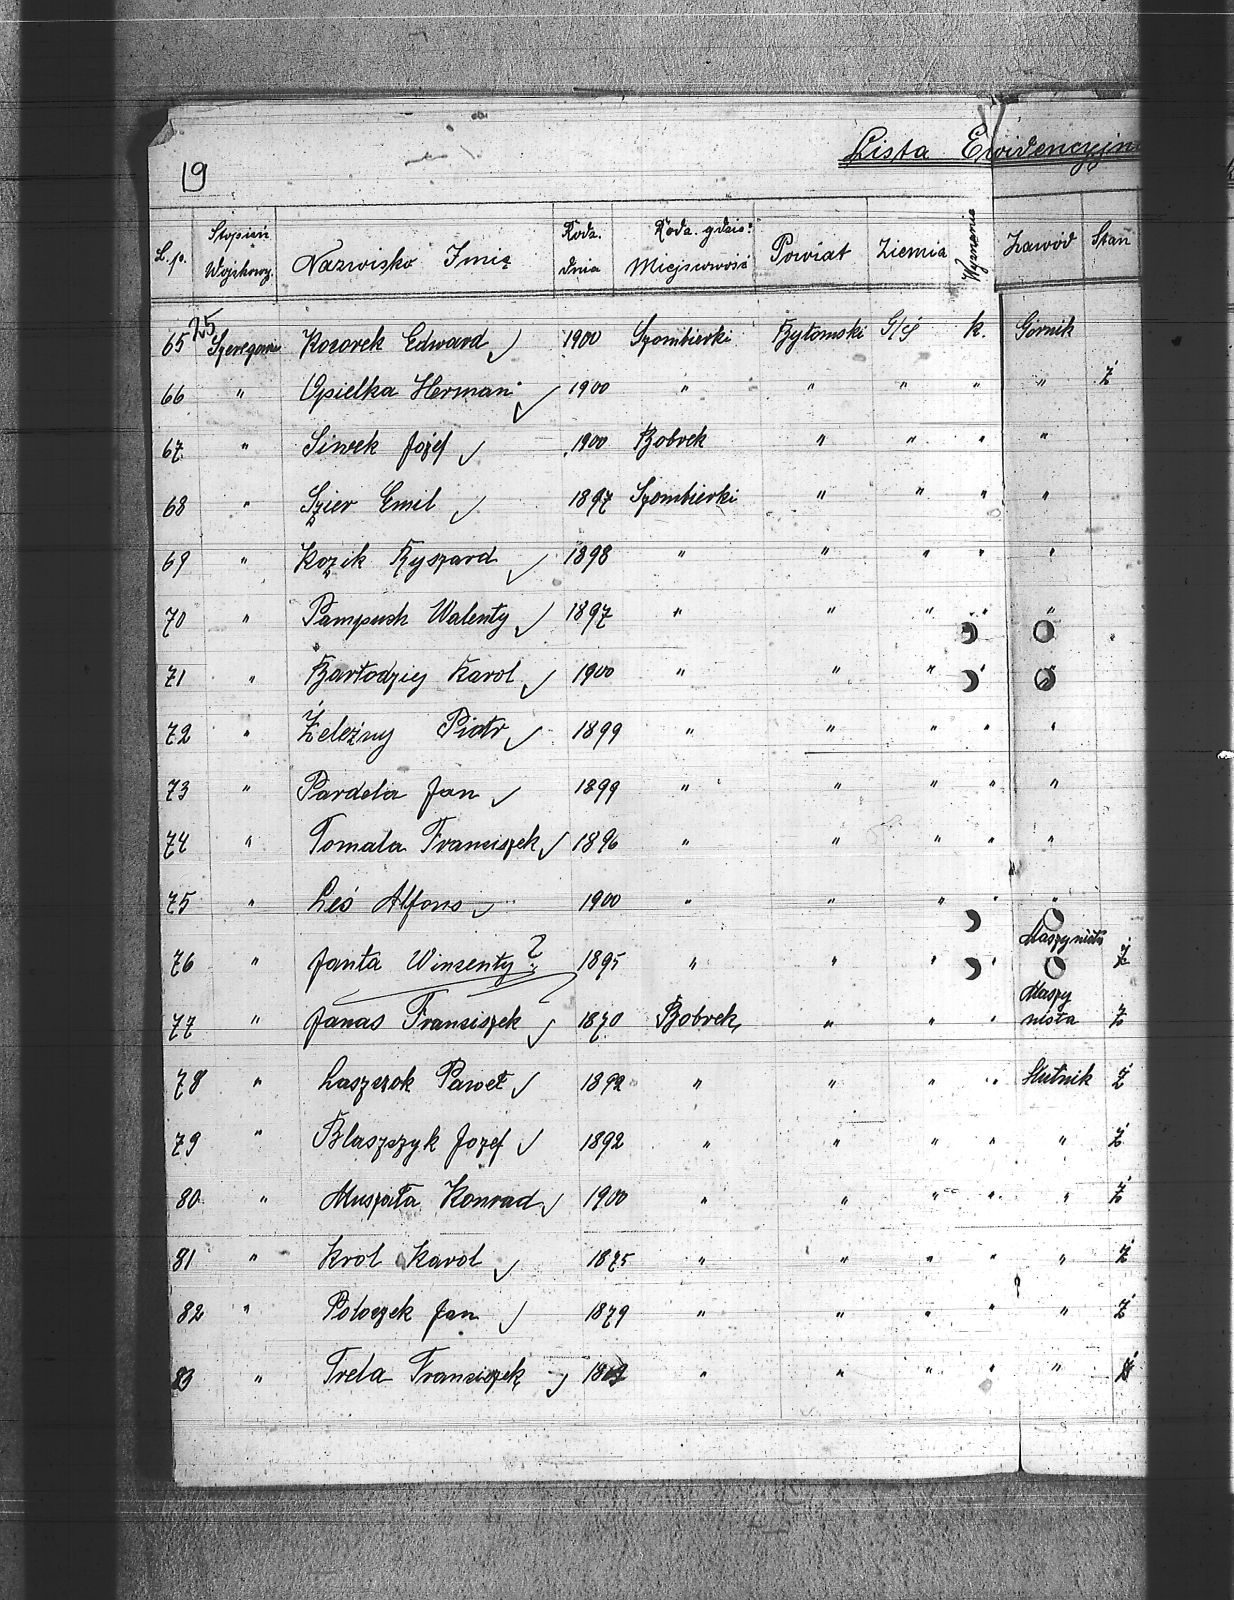 Lista Ewidencyjna
19
L.p. Stopień Wojskowy. Nazwisko Imię Rodz. dnia Rodz. gdzie: Miejscowość Powiat Ziemia Wyznanie Zawód Stan
25
65 Szeregowi Kozorek Edward 1900 Szombierki Bytomski G/Śl k. Górnik
66 " Opielka Herman 1900 " " " " " Ż
67 " Siwek Józef 1900 Bobrek " " " "
68 " Szier Emil 1897 Szombierki " " " "
69 " Kozik Ryszard 1898 " " " " "
70 " Pampuch Walenty 1897 " " " " "
71 " Bartodziej Karol 1900 " " " " "
72 " Żeleźny Piotr 1899 " " " " "
73 " Pardela Jan 1899 " " " " "
74 " Tomala Franciszek 1896 " " " " "
75 " Leś Alfons 1900 " " " " "
76 " Janta Winzenty ? 1895 " " " " Maszynista Ż
77 " Janas Franciszek 1870 Bobrek " " " Maszynista Ż
78 " Laszczok Paweł 1892 " " " " Hutnik Ż
79 " Blaszczyk Jozef 1892 " " " " " Ż
80 " Muszała Konrad 1900 " " " " " Ż
81 " Krol Karol 1875 " " " " " Ż
82 " Poloczek Jan 1879 " " " " " Ż
83 " Trela Franciszek " " " " "